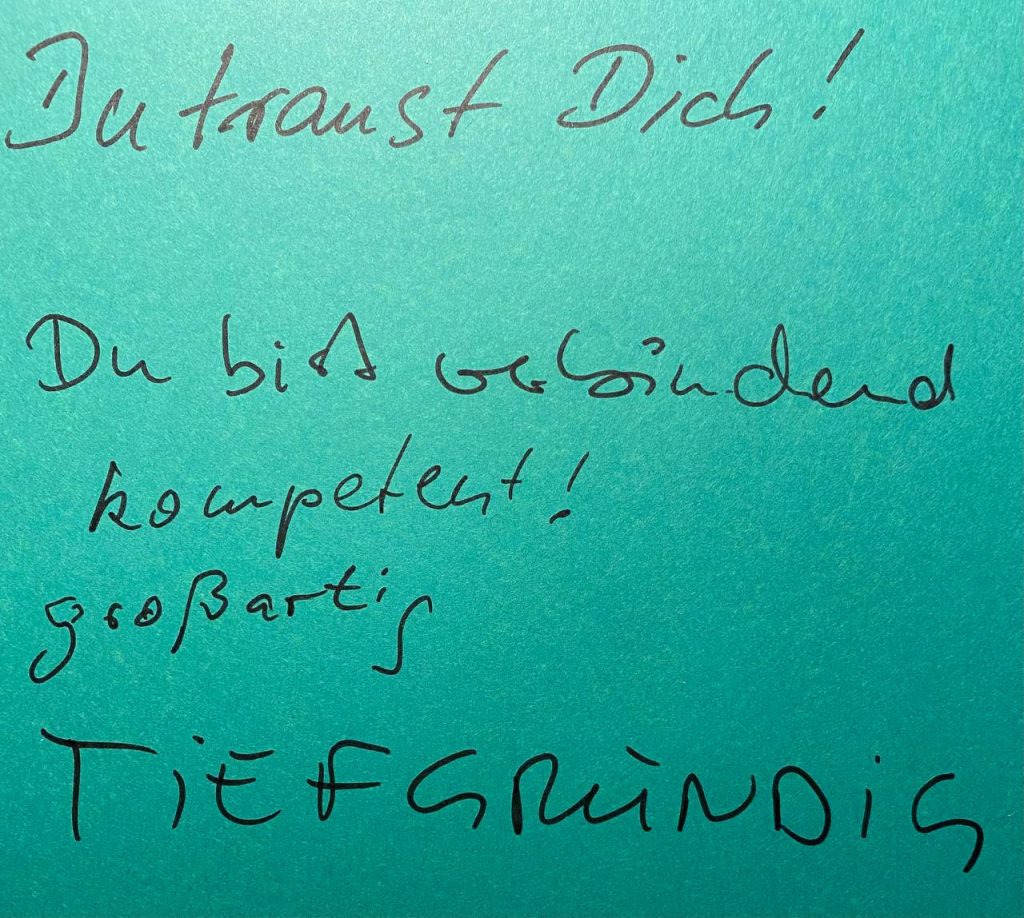 Du traust Dich!
Du bist verbindend
kompetent!
großartig
TiEFGRÜNDiG